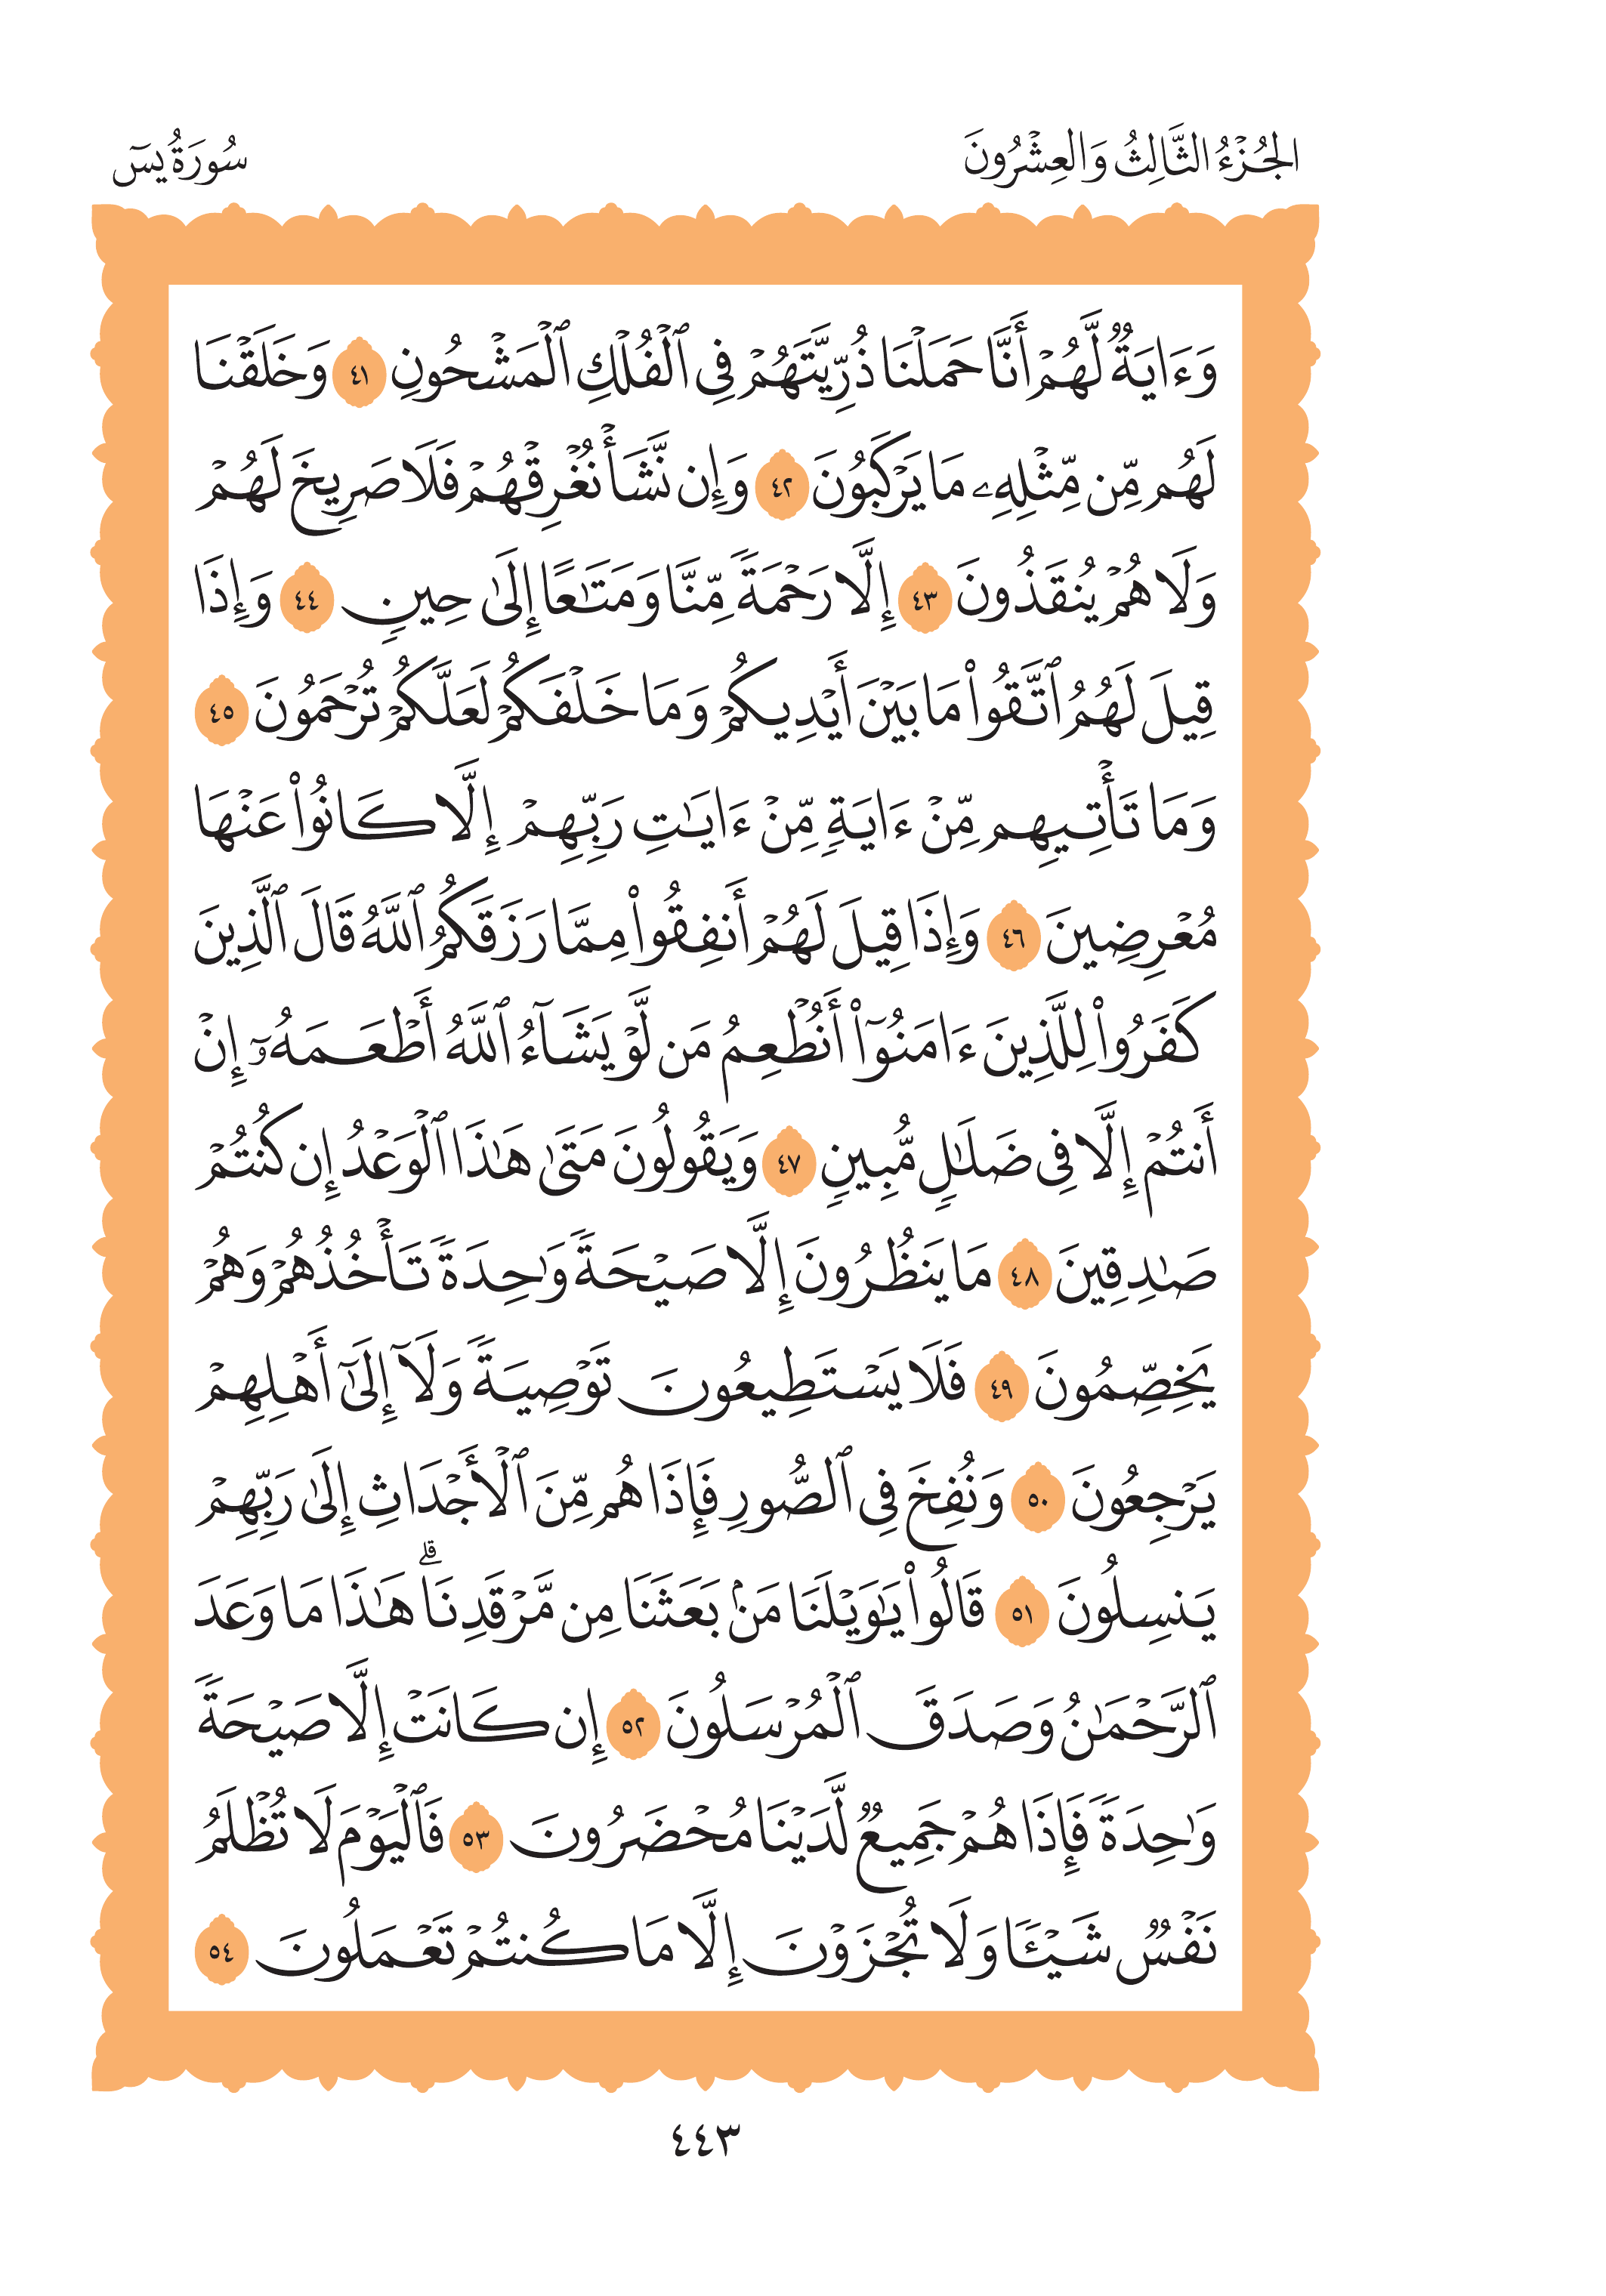 الجُزْءُ الثَّالِثُ وَالعِشْرُونَ
سُورَةُ يسٓ
وَءَايَةٞ لَّهُمۡ أَنَّا حَمَلۡنَا ذُرِّيَّتَهُمۡ فِي ٱلۡفُلۡكِ ٱلۡمَشۡحُونِ ٤١ وَخَلَقۡنَا
لَهُم مِّن مِّثۡلِهِۦ مَا يَرۡكَبُونَ ٤٢ وَإِن نَّشَأۡ نُغۡرِقۡهُمۡ فَلَا صَرِيخَ لَهُمۡ
وَلَا هُمۡ يُنقَذُونَ ٤٣ إِلَّا رَحۡمَةٗ مِّنَّا وَمَتَٰعًا إِلَىٰ حِينٖ ٤٤ وَإِذَا
قِيلَ لَهُمُ ٱتَّقُواْ مَا بَيۡنَ أَيۡدِيكُمۡ وَمَا خَلۡفَكُمۡ لَعَلَّكُمۡ تُرۡحَمُونَ ٤٥
وَمَا تَأۡتِيهِم مِّنۡ ءَايَةٖ مِّنۡ ءَايَٰتِ رَبِّهِمۡ إِلَّا كَانُواْ عَنۡهَا
مُعۡرِضِينَ ٤٦ وَإِذَا قِيلَ لَهُمۡ أَنفِقُواْ مِمَّا رَزَقَكُمُ ٱللَّهُ قَالَ ٱلَّذِينَ
كَفَرُواْ لِلَّذِينَ ءَامَنُوٓاْ أَنُطۡعِمُ مَن لَّوۡ يَشَآءُ ٱللَّهُ أَطۡعَمَهُۥٓ إِنۡ
أَنتُمۡ إِلَّا فِي ضَلَٰلٖ مُّبِينٖ ٤٧ وَيَقُولُونَ مَتَىٰ هَٰذَا ٱلۡوَعۡدُ إِن كُنتُمۡ
صَٰدِقِينَ ٤٨ مَا يَنظُرُونَ إِلَّا صَيۡحَةٗ وَٰحِدَةٗ تَأۡخُذُهُمۡ وَهُمۡ
يَخِصِّمُونَ ٤٩ فَلَا يَسۡتَطِيعُونَ تَوۡصِيَةٗ وَلَآ إِلَىٰٓ أَهۡلِهِمۡ
يَرۡجِعُونَ ٥٠ وَنُفِخَ فِي ٱلصُّورِ فَإِذَا هُم مِّنَ ٱلۡأَجۡدَاثِ إِلَىٰ رَبِّهِمۡ
يَنسِلُونَ ٥١ قَالُواْ يَٰوَيۡلَنَا مَنۢ بَعَثَنَا مِن مَّرۡقَدِنَاۗ هَٰذَا مَا وَعَدَ
ٱلرَّحۡمَٰنُ وَصَدَقَ ٱلۡمُرۡسَلُونَ ٥٢ إِن كَانَتۡ إِلَّا صَيۡحَةٗ
وَٰحِدَةٗ فَإِذَا هُمۡ جَمِيعٞ لَّدَيۡنَا مُحۡضَرُونَ ٥٣ فَٱلۡيَوۡمَ لَا تُظۡلَمُ
نَفۡسٞ شَيۡـٔٗا وَلَا تُجۡزَوۡنَ إِلَّا مَا كُنتُمۡ تَعۡمَلُونَ ٥٤
٤٤٣